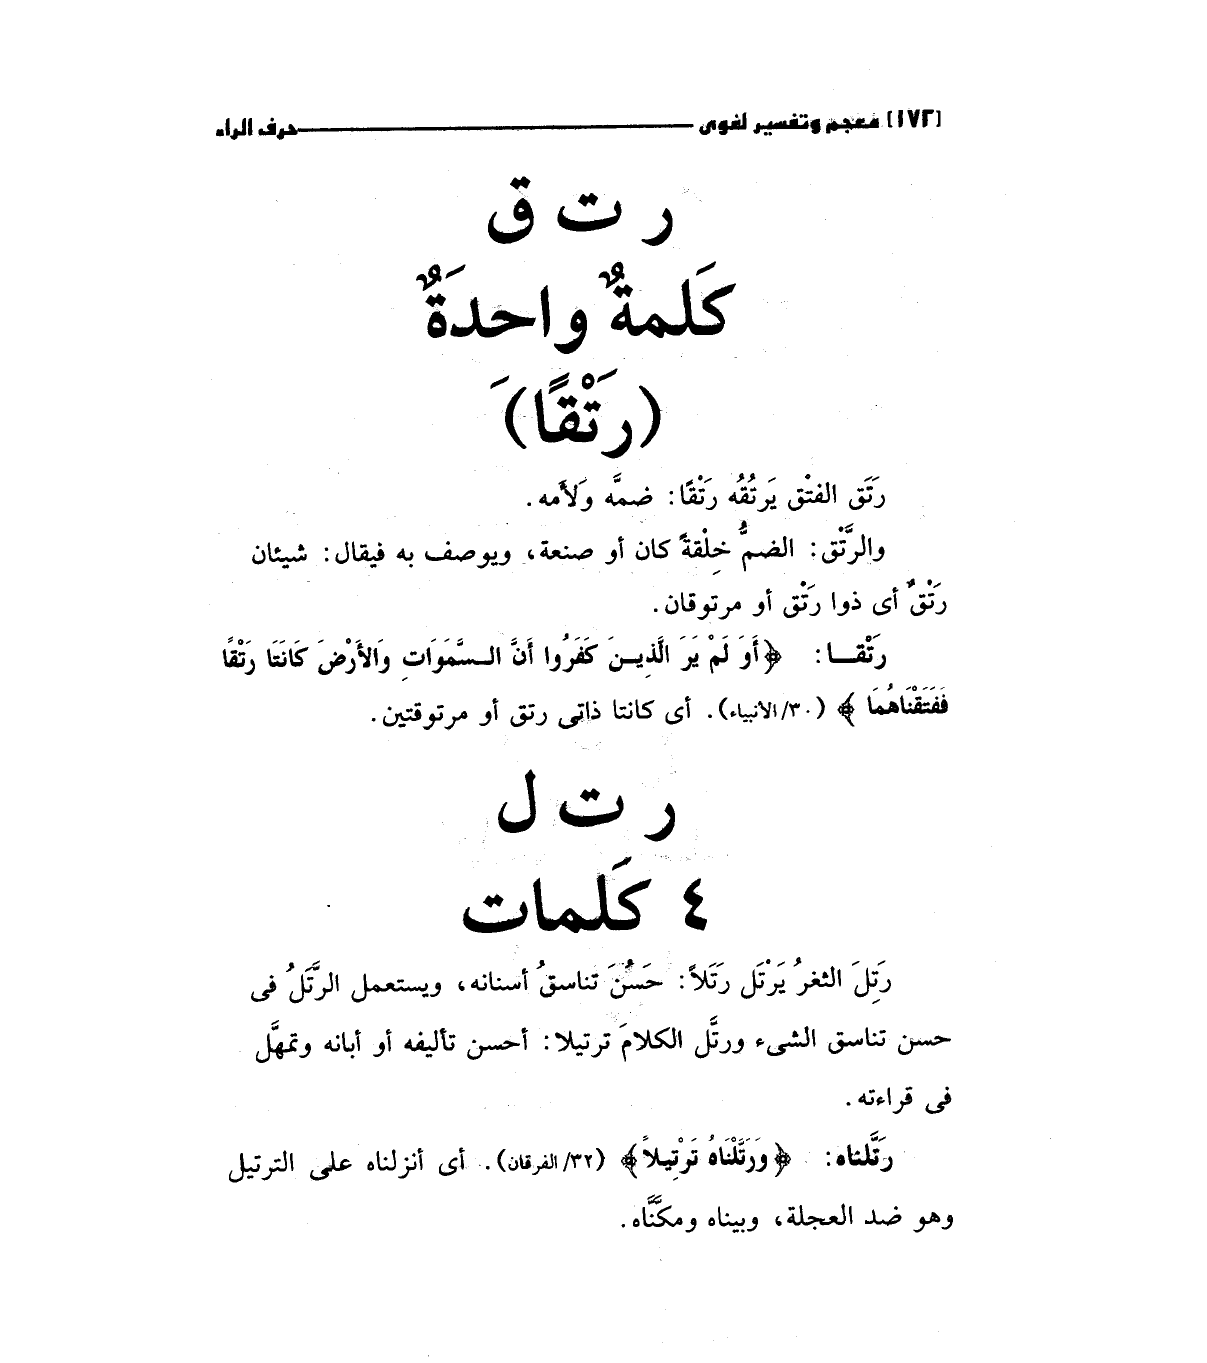 [١٧٢] معجم وتفسير لغوى حرف الراء
ر ت ق
كَلمةٌ واحدَةٌ
(رتَْقًا)َ
رَتَق الفتْق يَرتُقُه رَتْقًا: ضمَّه وَلأَمه.
والرَّتْق: الضمُّ خِلْقةً كان أو صنعة، ويوصف به فيقال: شيئان
رَتْقٌ أى ذوا رَتْق أو مرتوقان.
رَتْقـا: ﴿أَوَ لَمْ يَرَ الَّذِيـنَ كَفَرُوا أَنَّ السَّمَوَاتِ وَالأَرْضَ كَانَتَا رَتْقًا
فَفَتَقْنَاهُمَا﴾ (٣٠/الأنبياء). أى كانتا ذاتى رتق أو مرتوقتين.
ر ت ل
٤ كَلمات
رَتِلَ الثغرُ يَرْتَل رَتَلاً: حَسُنَ تناسقُ أسنانه، ويستعمل الرَّتَلُ فى
حسن تناسق الشىء ورتَّل الكلامَ ترتيلا: أحسن تأليفه أو أبانه وتمهَّل
فى قراءته.
رَتَّلناه: ﴿وَرَتَّلْنَاهُ تَرْتِيلاً﴾ (٣٢/الفرقان). أى أنزلناه على الترتيل
وهو ضد العجلة، وبيناه ومكنَّاه.